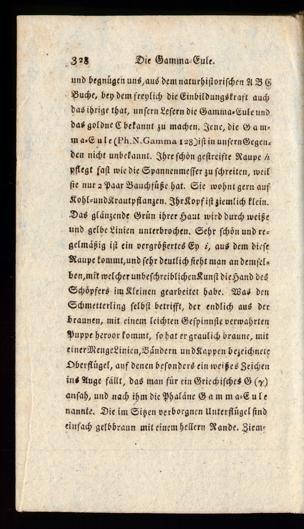 328 Die Gamma-Eule.
und begnügen uns, aus dem naturhistorischen A B C
Buche, bey dem freylich die Einbildungskraft auch
das ihrige that, unsern Lesern die Gamma-Eule und
das goldne C bekannt zu machen. Jene, die Gam-
ma-Eule (Ph. N. Gamma 128) ist in unsern Gegen-
den nicht unbekannt. Ihre schön gestreifte Raupe h
pflegt fast wie die Spannenmesser zu schreiten, weil
sie nur 2 Paar Bauchfüße hat. Sie wohnt gern auf
Kohl- und Krautpflanzen. Ihr Kopf ist ziemlich klein.
Das glänzende Grün ihrer Haut wird durch weiße
und gelbe Linien unterbrochen. Sehr schön und re-
gelmäßig ist ein vergrößertes Ey i, aus dem diese
Raupe kommt, und sehr deutlich sieht man an demsel-
ben, mit welcher unbeschreiblichen Kunst die Hand des
Schöpfers im Kleinen gearbeitet habe. Was den
Schmetterling selbst betrifft, der endlich aus der
braunen, mit einem leichten Gespinnste verwahrten
Puppe hervor kommt, so hat er graulich braune, mit
einer Menge Linien, Bändern und Kappen bezeichnete
Oberflügel, auf denen besonders ein weißes Zeichen
ins Auge fällt, das man für ein Griechisches G (γ)
ansah, und nach ihm die Phaläne Gamma-Eule
nannte. Die im Sitzen verborgnen Unterflügel sind
einfach gelbbraun mit einem hellern Rande. Ziem-